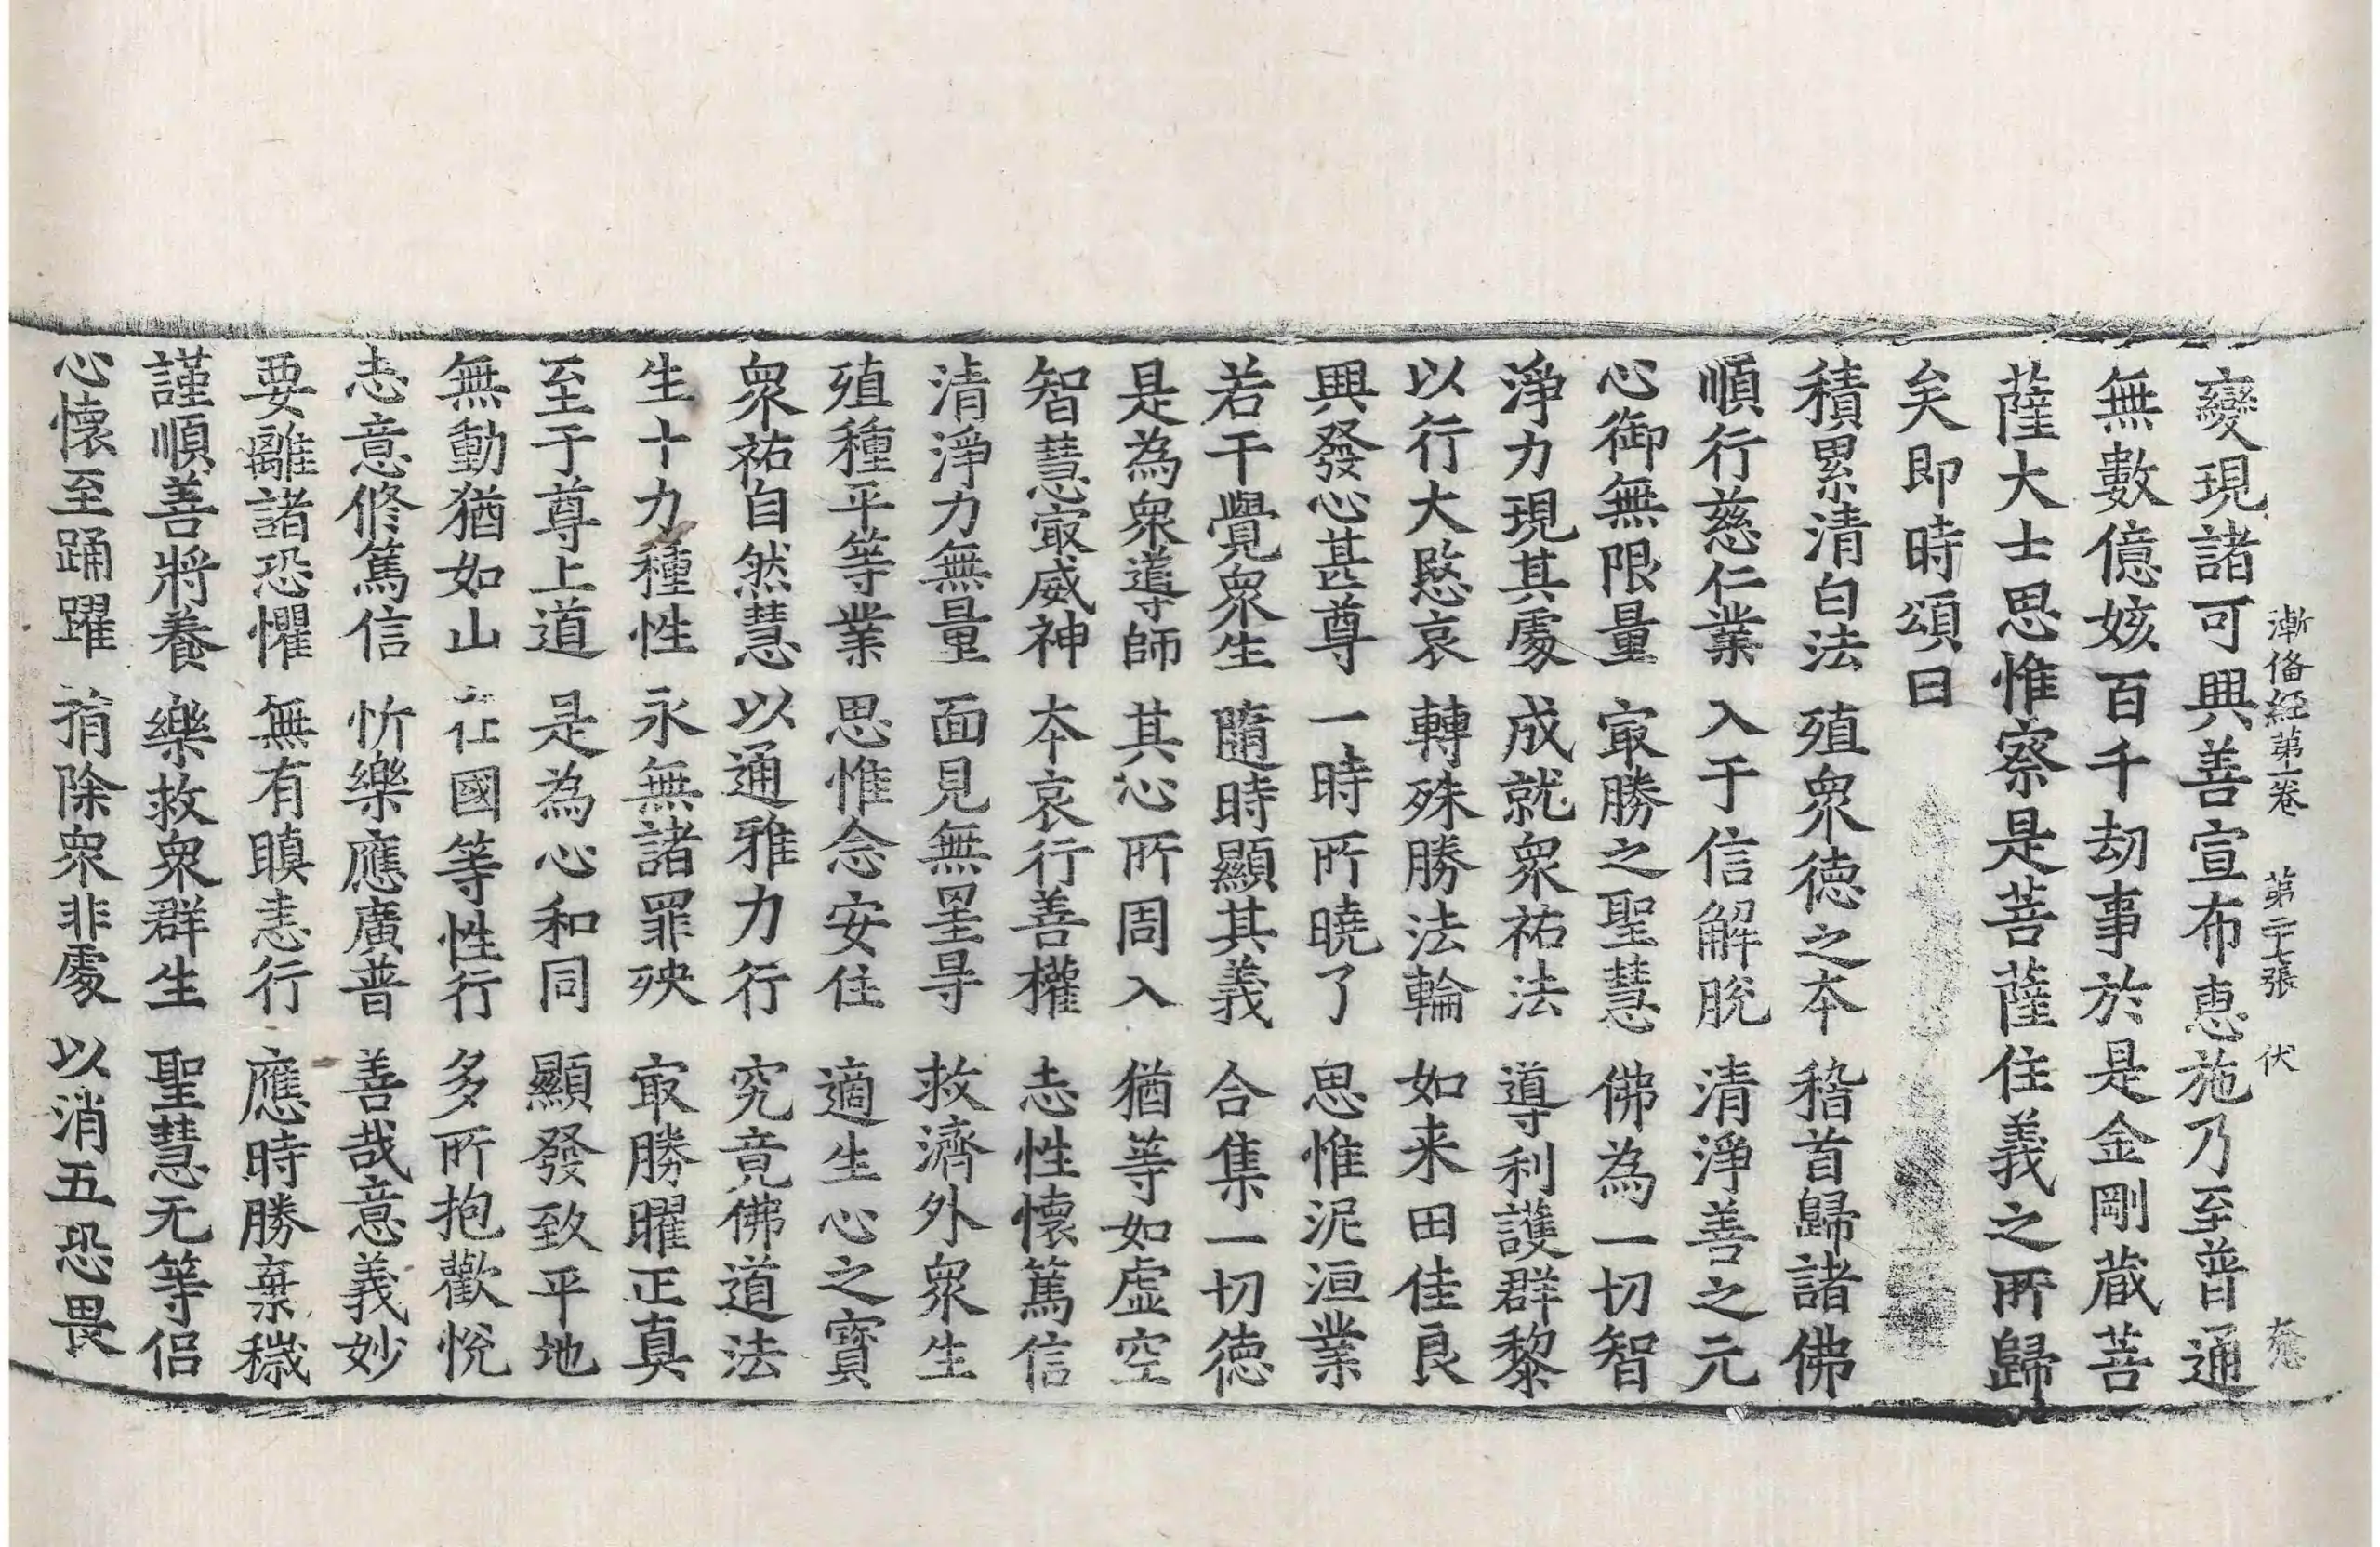 漸俻經第一卷 第二十七張 伏
變現諸可興善宣布恵施乃至普通
無數億姟百千劫事於是金剛蔵菩
薩大士思惟察是菩薩住義之所歸
矣即時頌曰
積累清白法 殖衆徳之本 稽首歸諸佛
順行慈仁業 入于信解脫 清淨善之元
心御無限量 㝡勝之聖慧 佛為一切智
淨力現其處 成就衆祐法 導利護群黎
以行大愍哀 轉殊勝法輪 如来田佳良
興發心甚尊 一時所曉了 思惟泥洹業
若干覺衆生 隨時顯其義 合集一切徳
是為衆導師 其心所周入 猶等如虚空
智慧㝡威神 本哀行善權 志性懷篤信
清淨力無量 面見無罣㝵 救濟外衆生
殖種平等業 思惟念安住 適生心之寶
衆祐自然慧 以通雅力行 究竟佛道法
生十力種性 永無諸罪殃 㝡勝曜正真
至于尊上道 是為心和同 顯發致平地
無動猶如山 在國等性行 多所抱歡悅
志意修篤信 忻樂應廣普 善哉意義妙
要離諸恐懼 無有瞋恚行 應時勝棄穢
謹順善將養 樂救衆群生 聖慧无等侣
心懷至踊躍 蠲除衆非處 以消五恐畏